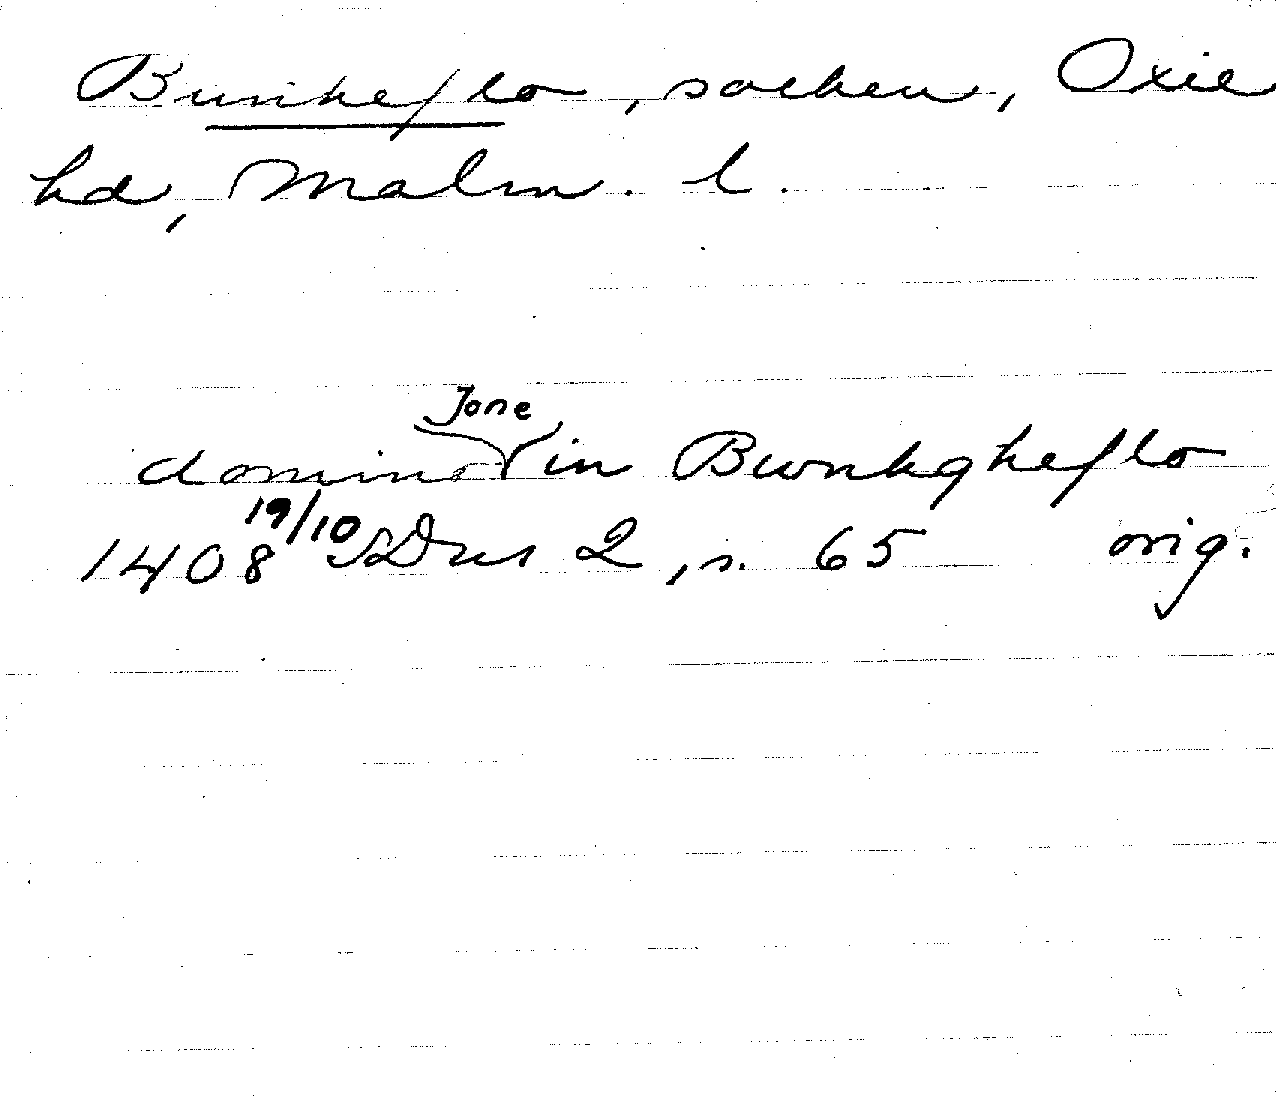 Bunkeflo, socken, Oxie
hd, Malm. l.
domino Jone in Bwnkgheflo
1408 19/10 SDns 2, s. 65 orig.